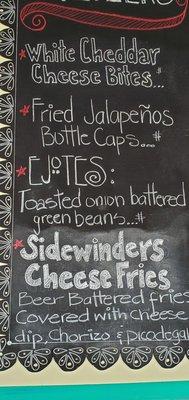 White Cheddar
Cheese Bites...
Fried Jalapeños
Bottle Caps...#
EJOTES:
Toasted onion battered
green beans...#
Sidewinders
Cheese Fries
Beer Battered fries
Covered with cheese
dip, Chorizo & picodegal